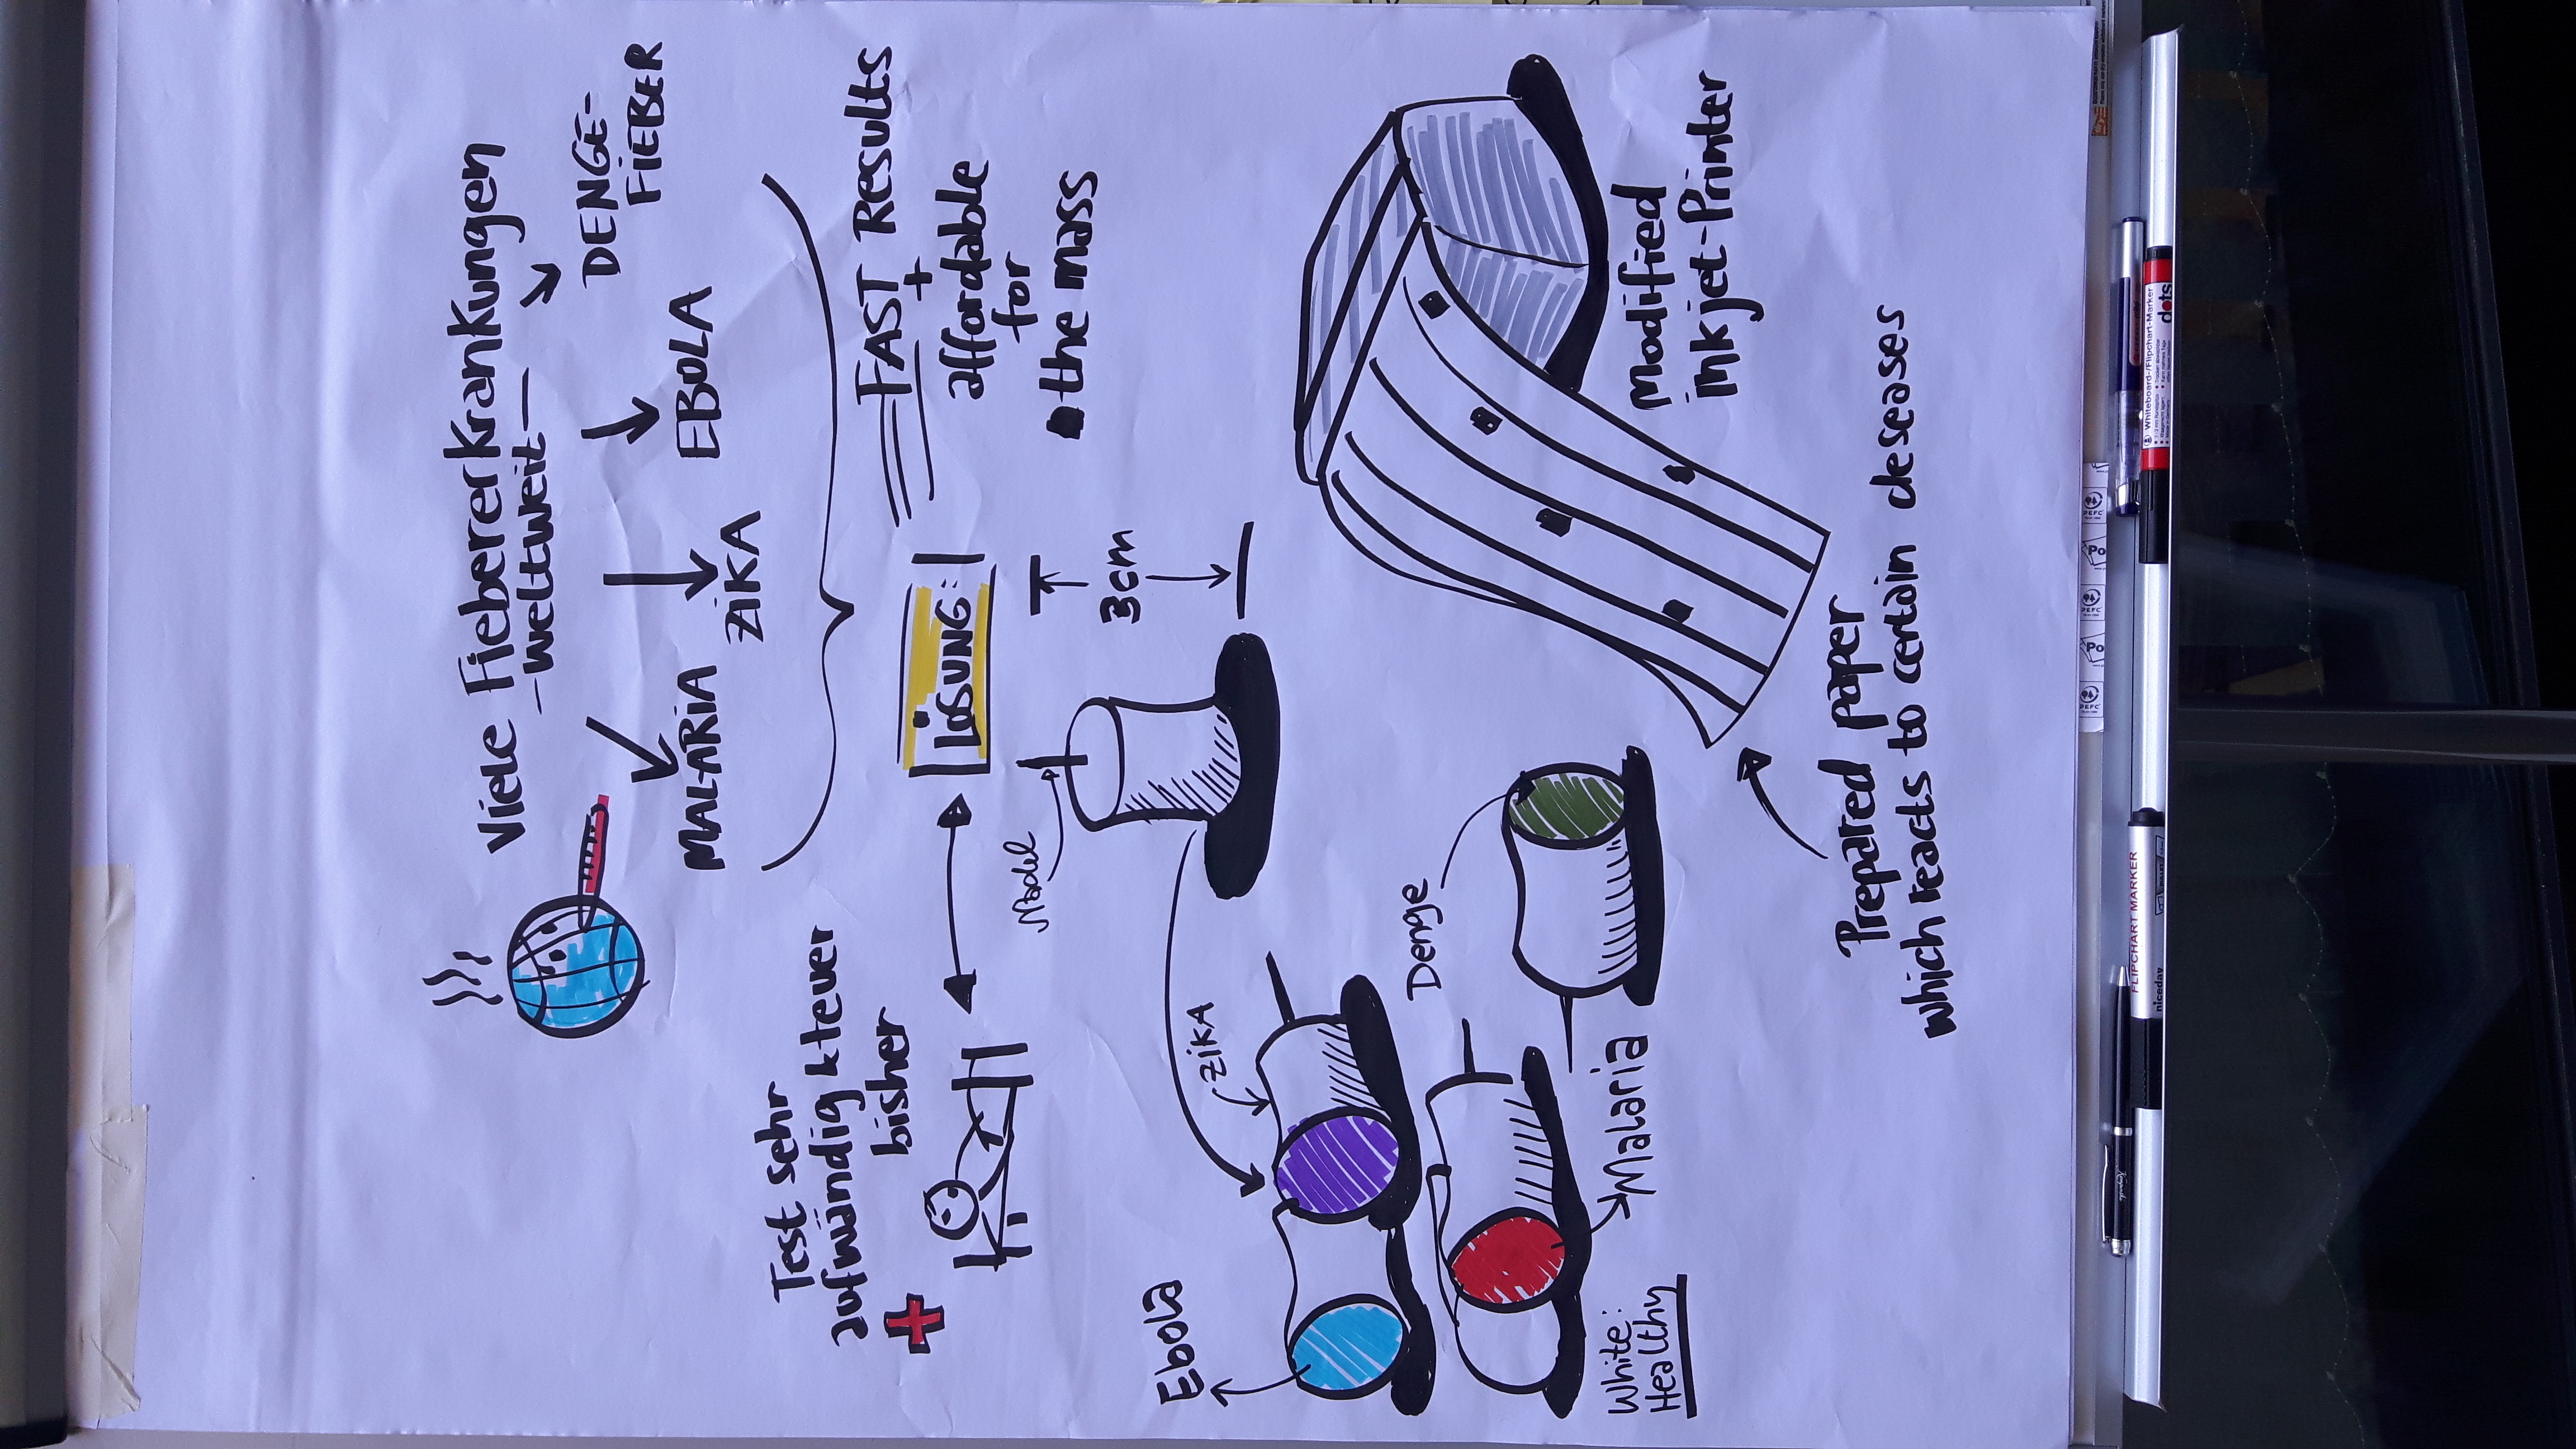 Viele Fiebererkrankungen
- weltweit -
DENGE-
FIEBER
EBOLA
ZIKA
MALARIA
Test sehr
aufwändig + teuer
bisher
LÖSUNG:
FAST Results
+
affordable
for
the mass
Model
3cm
Ebola
ZIKA
Denge
Malaria
White:
Healthy
Modified
inkjet-Printer
Prepared paper
which reacts to certain deseases
FLIPCHART MARKER
niceday
Whiteboard-/Flipchart-Marker
dots
PEFC
Po
PEFC
Po
PEFC